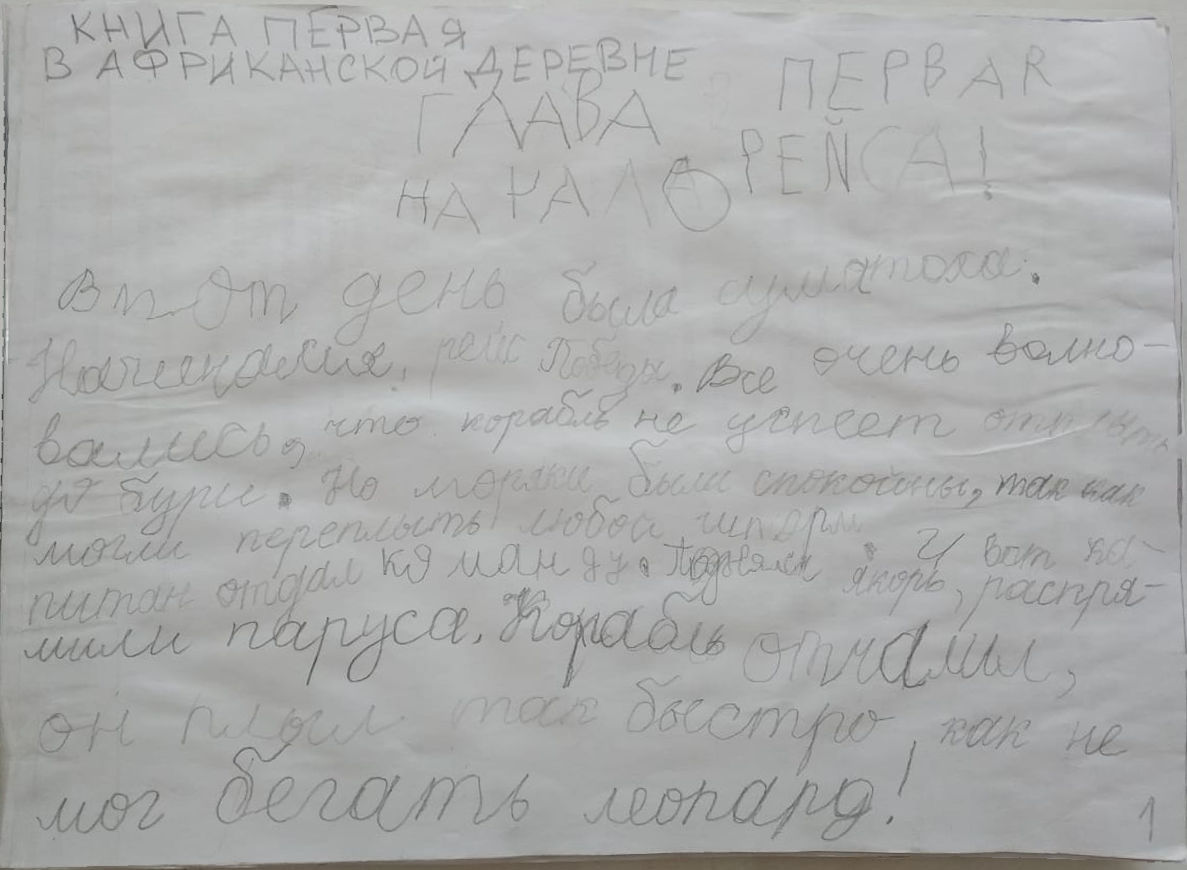 КНИГА ПЕРВАЯ
В АФРИКАНСКОЙ ДЕРЕВНЕ
ГЛАВА ПЕРВАЯ
НАЧАЛО РЕЙСА!
В тот день была суматоха.
Начинался рейс Победы. Все очень волно-
вались, что корабль не успеет отплыть
до бури. Но моряки были спокойны, так как
могли переплыть любой шторм. И вот ка-
питан отдал команду. Поднялся якорь, распря-
мили паруса. Корабль отчалил,
он плыл так быстро, как не
мог бегать леопард!
1